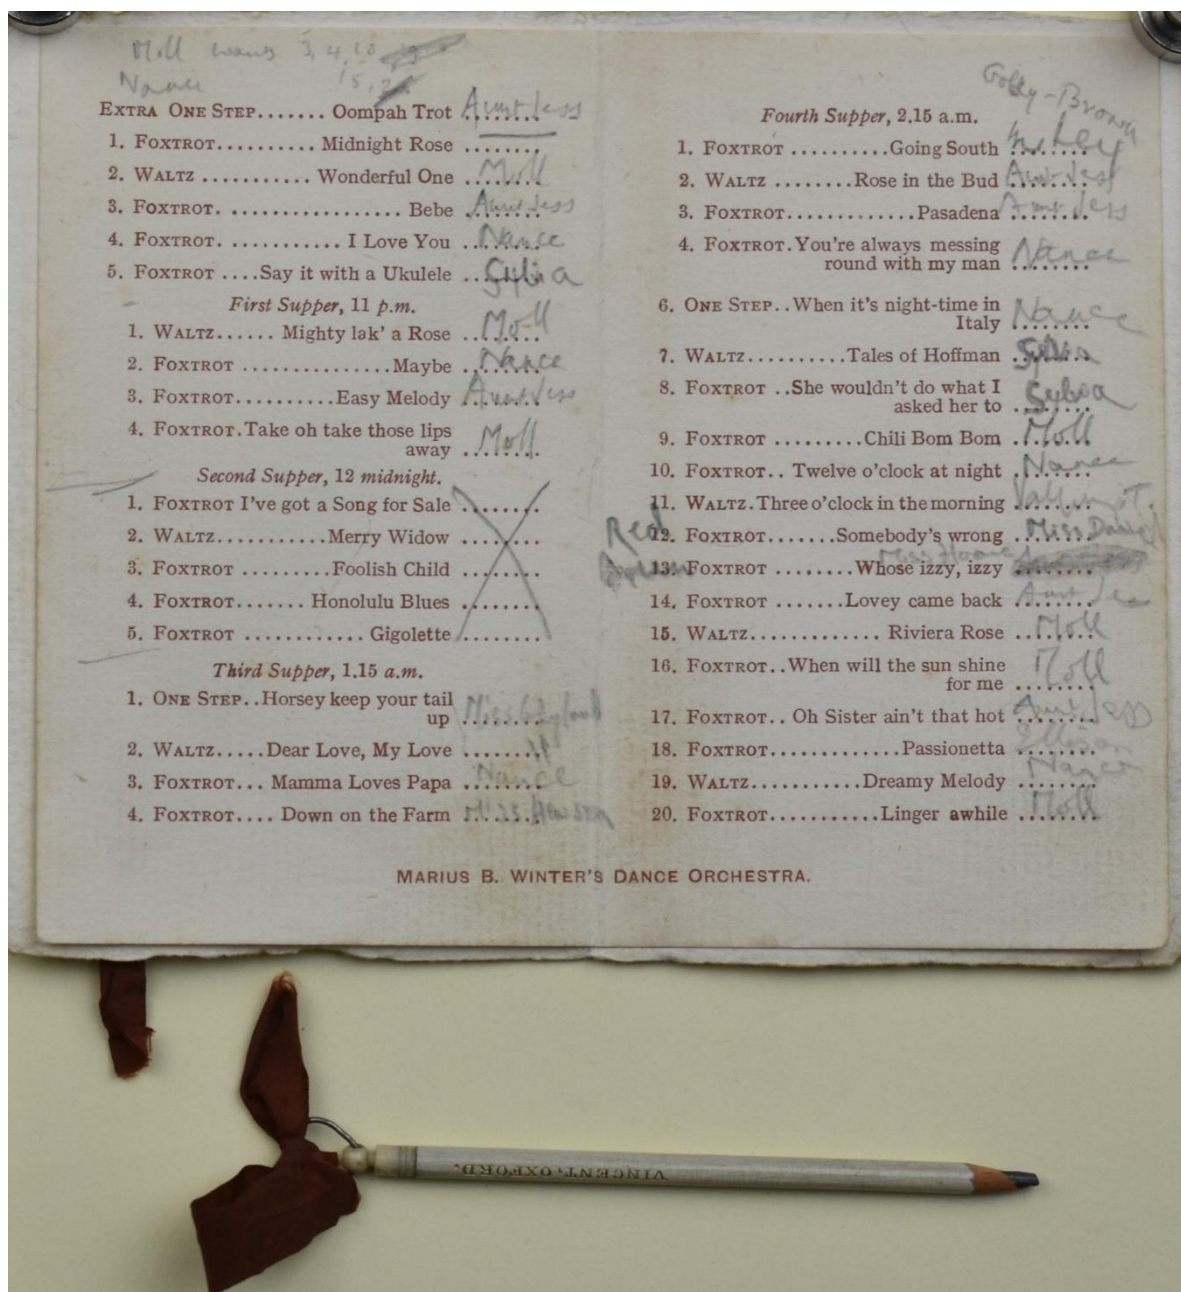 Moll wants 3, 4, 13
Nance 15, 2
EXTRA ONE STEP....... Oompah Trot Aunt Jess
1. FOXTROT.......... Midnight Rose ........
2. WALTZ ........... Wonderful One Moll
3. FOXTROT. ................. Bebe Aunt Jess
4. FOXTROT. ........... I Love You Nance
5. FOXTROT ....Say it with a Ukulele Sylvia
First Supper, 11 p.m.
1. WALTZ...... Mighty lak' a Rose Moll
2. FOXTROT ...............Maybe Nance
3. FOXTROT..........Easy Melody Aunt Jess
4. FOXTROT.Take oh take those lips
away Moll
Second Supper, 12 midnight.
1. FOXTROT I've got a Song for Sale ........
2. WALTZ...........Merry Widow ........
3. FOXTROT ........Foolish Child ........
4. FOXTROT....... Honolulu Blues ........
5. FOXTROT ............ Gigolette ........
Third Supper, 1.15 a.m.
1. ONE STEP..Horsey keep your tail
up Miss
2. WALTZ.....Dear Love, My Love ........
3. FOXTROT... Mamma Loves Papa Nance
4. FOXTROT.... Down on the Farm Miss
-Brown
Fourth Supper, 2.15 a.m.
1. FOXTROT ..........Going South
2. WALTZ ........Rose in the Bud Aunt Jess
3. FOXTROT............Pasadena Aunt Jess
4. FOXTROT.You're always messing
round with my man Nance
6. ONE STEP..When it's night-time in
Italy Nance
7. WALTZ..........Tales of Hoffman Sylvia
8. FOXTROT ..She wouldn't do what I
asked her to Sylvia
9. FOXTROT .........Chili Bom Bom Moll
10. FOXTROT.. Twelve o'clock at night Nance
11. WALTZ.Three o'clock in the morning
Red
12. FOXTROT.......Somebody's wrong Miss
13. FOXTROT ........Whose izzy, izzy
14. FOXTROT .......Lovey came back Aunt Jess
15. WALTZ............. Riviera Rose Moll
16. FOXTROT..When will the sun shine
for me Moll
17. FOXTROT.. Oh Sister ain't that hot Aunt Jess
18. FOXTROT.............Passionetta Ellison
19. WALTZ...........Dreamy Melody Nance
20. FOXTROT...........Linger awhile Moll
MARIUS B. WINTER'S DANCE ORCHESTRA.
VINCENT, OXFORD.